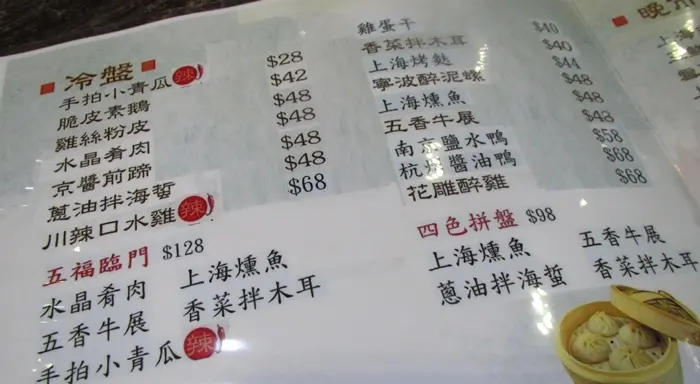 冷盤
手拍小青瓜 辣 $28
脆皮素鵝 $42
雞絲粉皮 $48
水晶肴肉 $48
京醬前蹄 $48
蔥油拌海蜇 $48
川辣口水雞 辣 $68
五福臨門 $128
水晶肴肉 上海燻魚
五香牛展 香菜拌木耳
手拍小青瓜 辣
雞蛋干
香菜拌木耳
上海烤麩
寧波醉泥螺
上海燻魚
五香牛展
南京鹽水鴨
杭州醬油鴨
花雕醉雞
$40
$40
$44
$48
$48
$58
$68
$68
四色拼盤 $98
上海燻魚 五香牛展
蔥油拌海蜇 香菜拌木耳